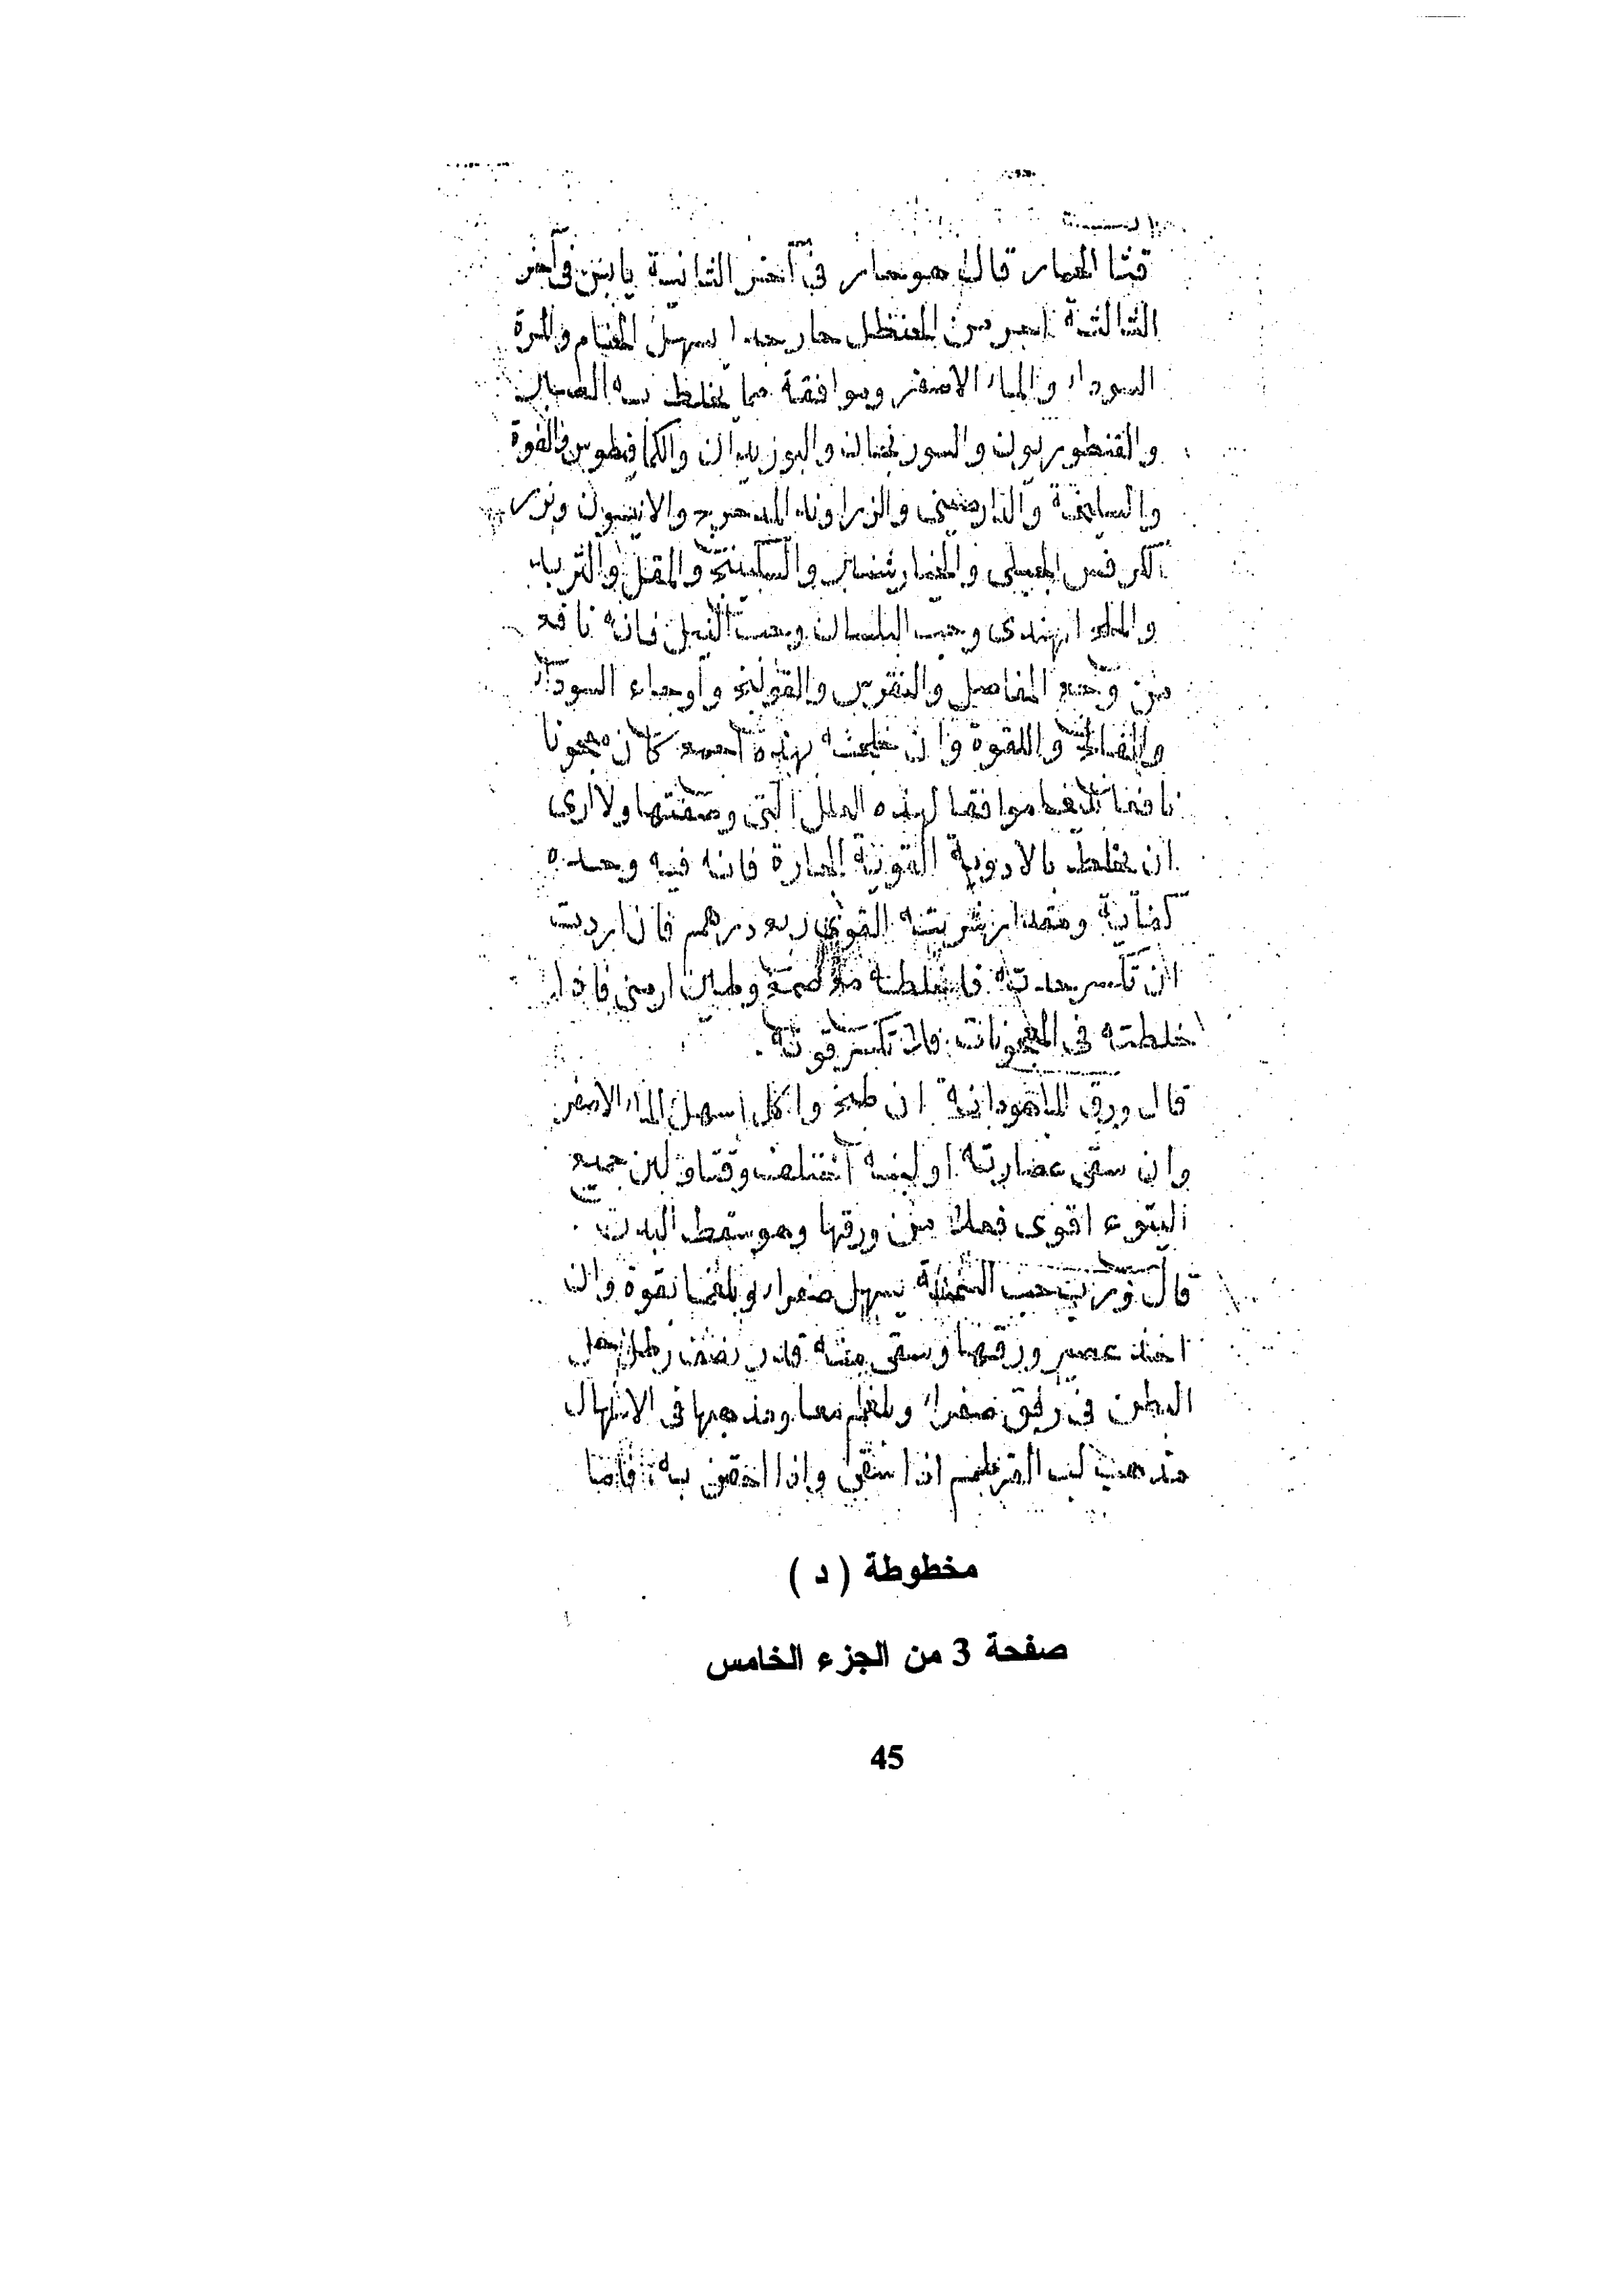 قثا الحمار قال هو حار في آخر الثانية يابس في آخر
الثالثة من الحنظل حار جدا يسهل الخام والمرة
السوداء والماء الاصفر وموافقة ما يخلط به الصبر
والقنطوريون والسورنجان والبوزيدان والكمافيطوس والفوة
والسليخة والدارصيني والزراوند المدحرج والانيسون وبزر
الكرفس الجبلي والخيارشنبر والسكبينج والمقل والتربد
والملح الهندى وحب البلسان وحب النيل فانه نافع
من وجع المفاصل والنقرس والقولنج وأوجاع السوداء
والفالج واللقوة وان خلطته بهذه اجمع كان معجونا
نافعا موافقا لهذه العلل التي وصفتها ولا ارى
ان يخلط بالادوية القوية الحارة فانه فيه وحده
كفاية ومقدار شربته القوى ربع درهم فان اردت
ان تكسر حدته فاخلطه مع صمغ وطين ارمني فاذا
خلطته في المعجونات فلا تكسر قوته.
قال ورق الماهودانة ان طبخ واكل اسهل الماء الاصفر
وان سقى عصارته او لبنه اختلف وقتا ولبن جميع
اليتوع اقوى فعلا من ورقها وهو سقط البدن
قال حب يسهل صفراء وبلغما بقوة وان
اخذ عصير ورقها وسقى منه قدر نصف رطل حل
البطن في رفق صفراء وبلغم معا ومذهبها في الاسهال
مذهب لب القرطم اذا سقى واذا احتقن به فاما
مخطوطة ( د )
صفحة 3 من الجزء الخامس
45